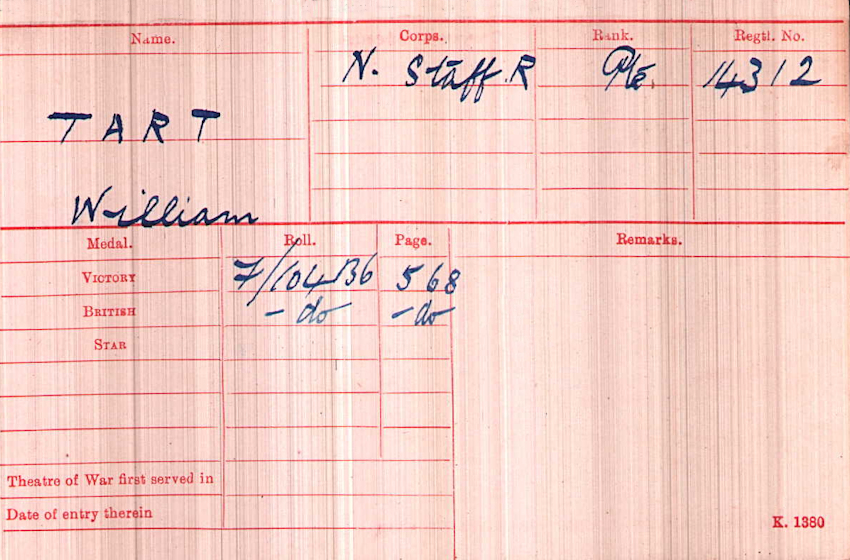 Name. Corps. Rank. Regtl. No.
N. Staff. R Pte. 14312
TART
William
Medal. Roll. Page. Remarks.
VICTORY 7/104B6 568
BRITISH - do - do
STAR
Theatre of War first served in
Date of entry therein
K. 1380